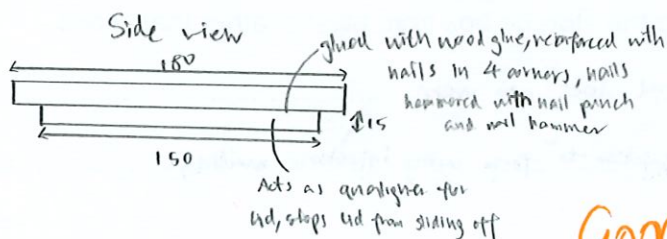 Side view
glued with wood glue, reinforced with
180
nails in 4 corners, nails
hammered with nail punch
and nail hammer
15
150
Acts as an aligner for
lid, stops lid from sliding off
Good